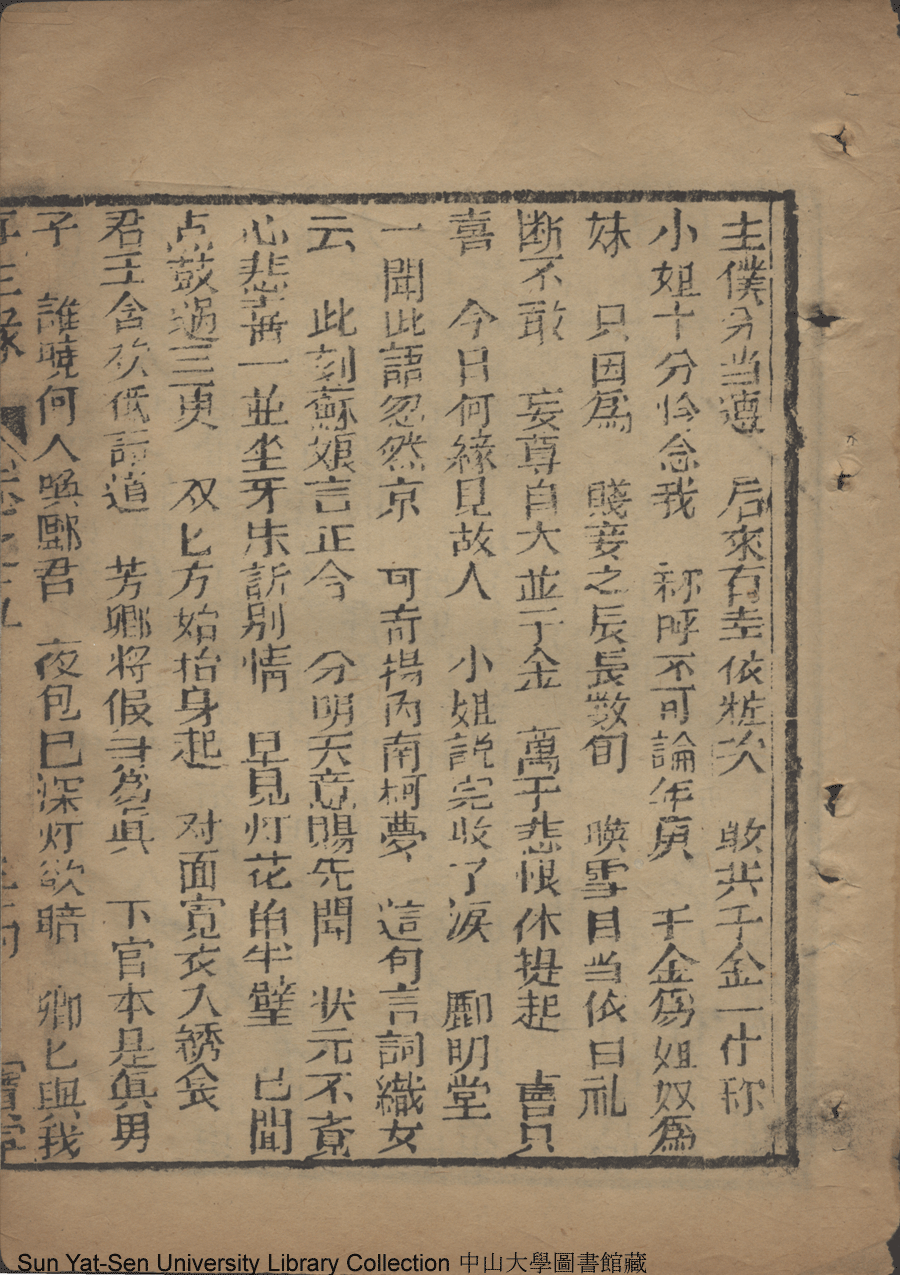 主僕分当遵　后來有幸依粧次　敢共千金一什称
小姐十分怜念我　称呼不可論年庚　千金為姐奴為
妹　只因為　賤妾之辰長数旬　暎雪目当依日礼
断不敢　妄尊自大並千金　萬千悲恨休提起　喜只
喜　今日何緣見故人　小姐説完收了淚　酈明堂
一聞此語忽然京　可奇揚丙南柯夢　這句言詞織女
云　此刻蘇娘言正今　分明天意賜先聞　状元不竟
心悲喜　一並坐牙床訴别情　早見灯花䏍半壁　已聞
点鼓過三更　双匕方始抬身起　对面寛衣入綉衾
君玉含欢低語道　芳卿将假当為真　下官本是真男
子　誰曉何人喚酈君　夜色已深灯欲暗　卿匕與我
再生緣　卷之十九　寶寧
Sun Yat-Sen University Library Collection 中山大學圖書館藏